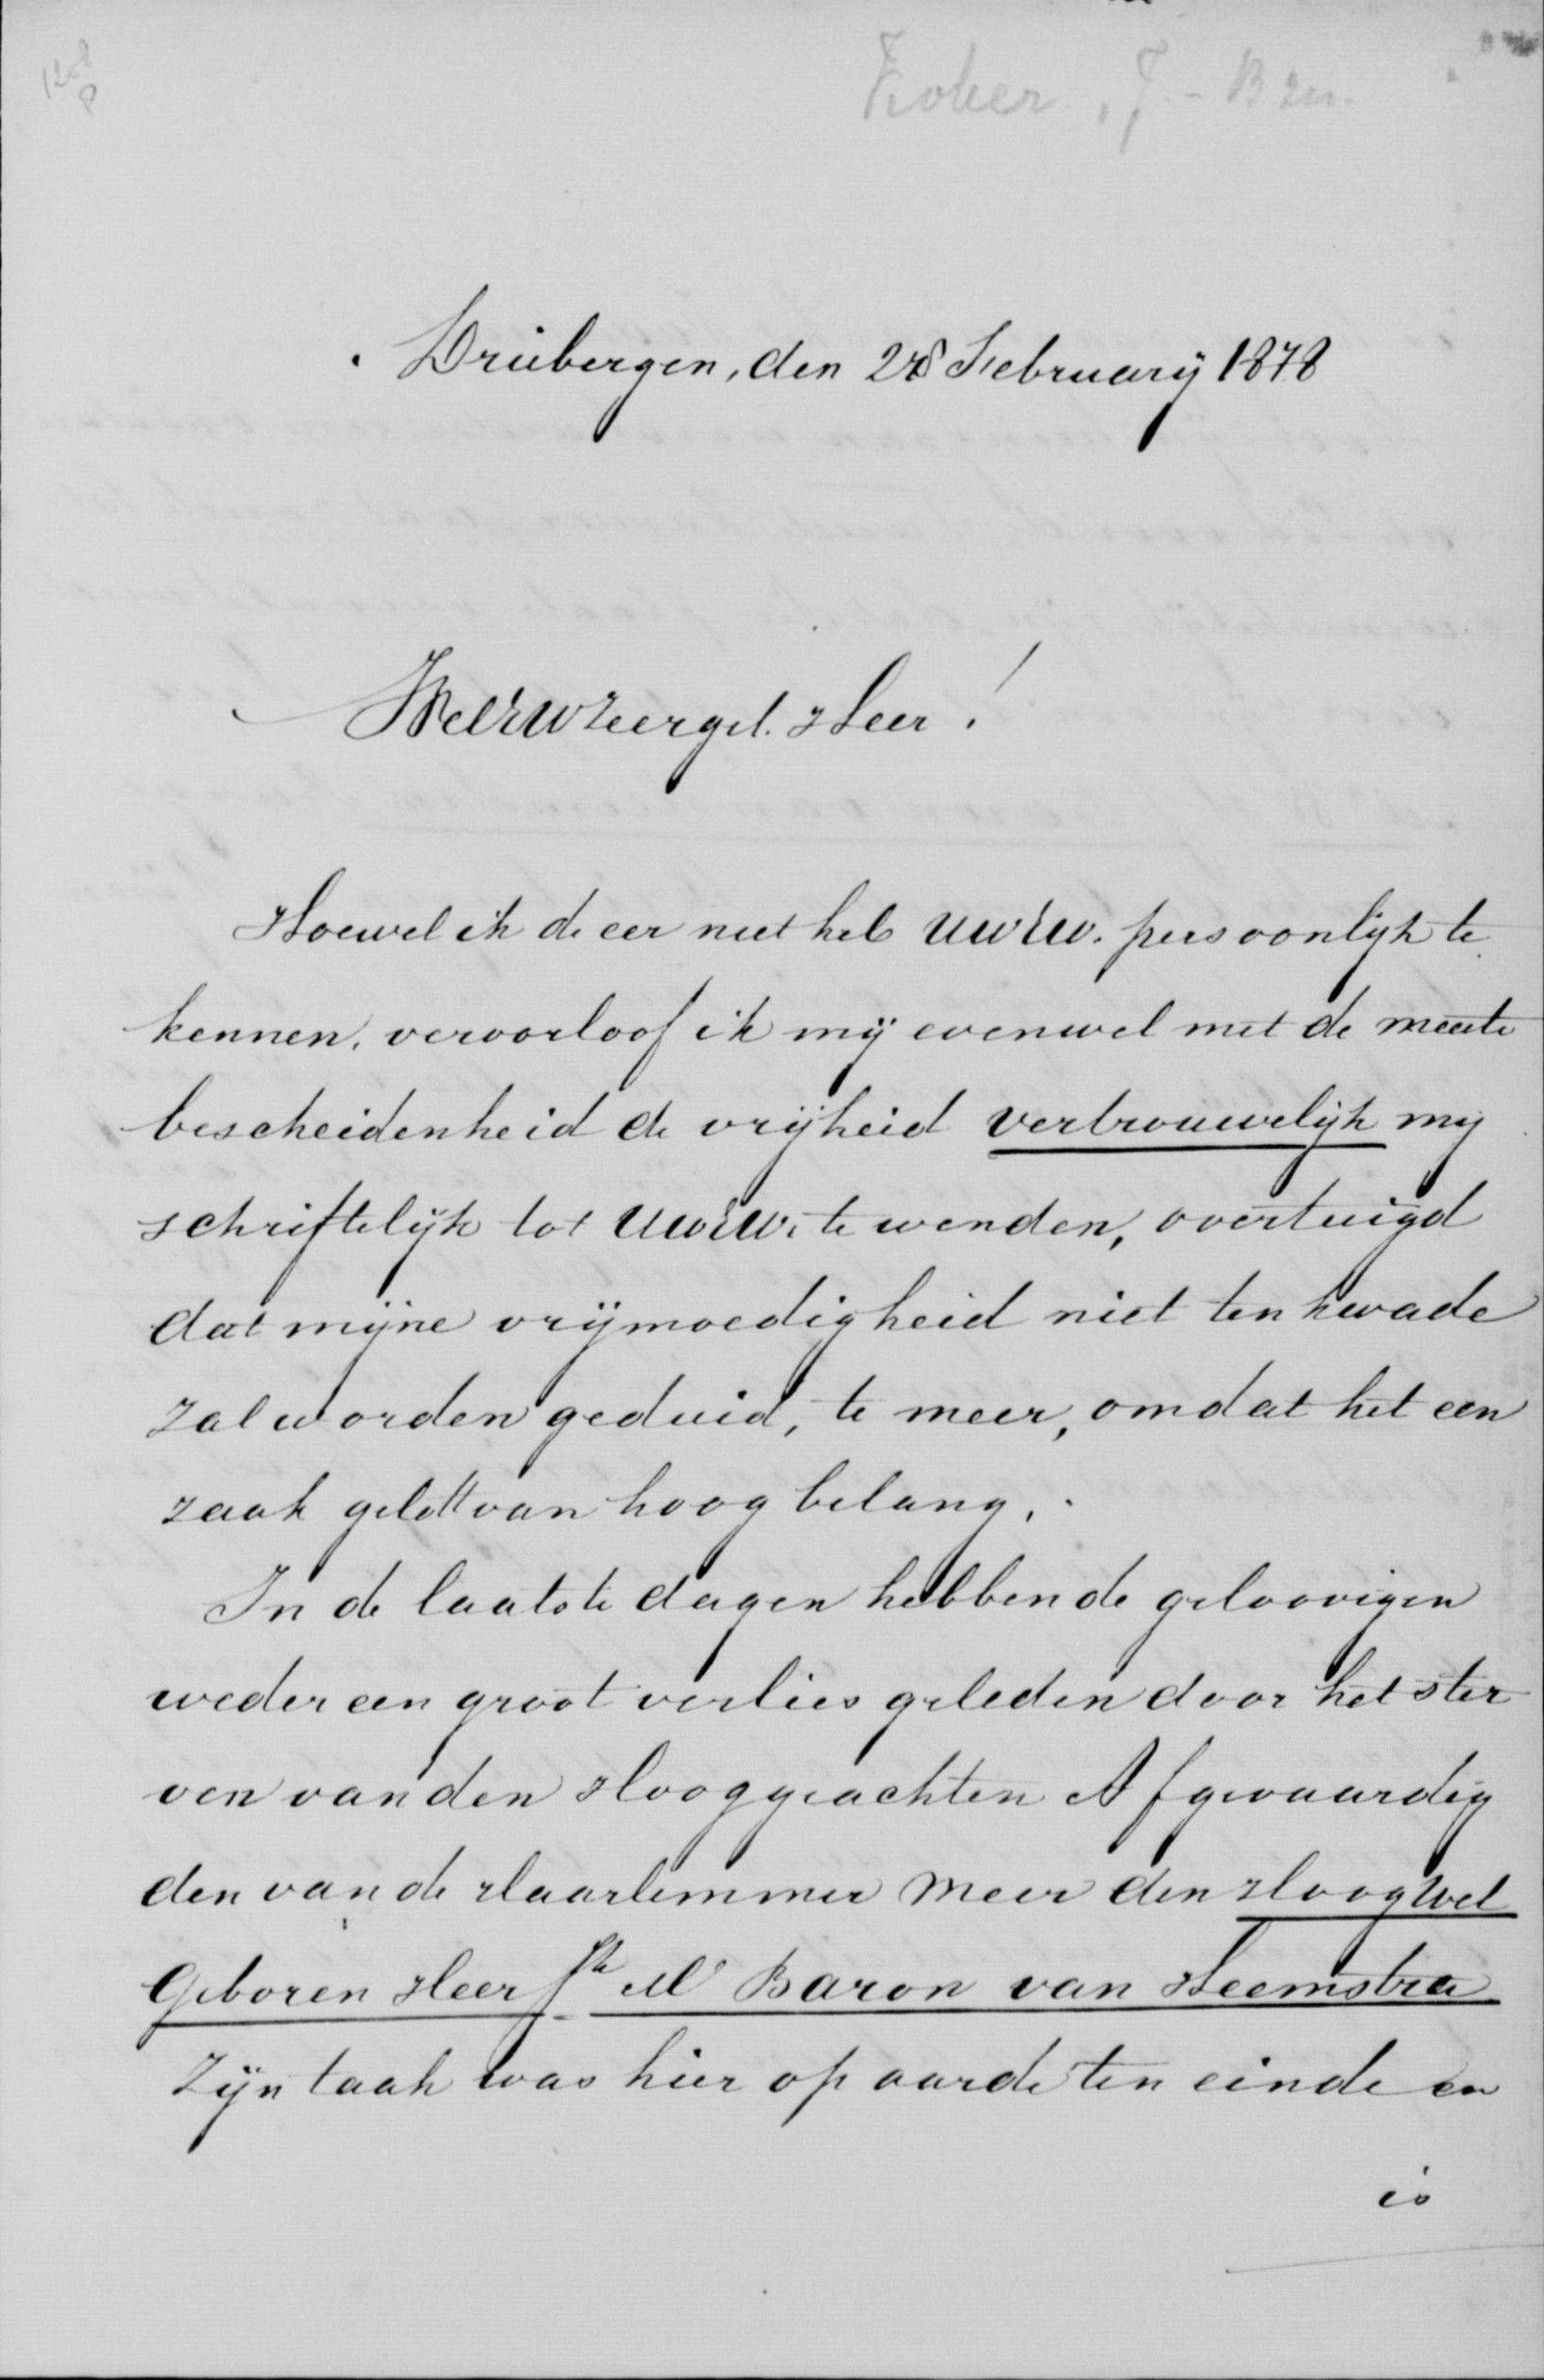 Driebergen, den 28 February 1878
WelEwZeergel. Heer!
Hoewel ik de eer niet heb UwEw. persoonlijk te
kennen, veroorloof ik mij evenwel met de meeste
bescheidenheid de vrijheid vertrouwelijk mij
schriftelijk tot UwEw. te wenden, overtuigd
dat mijne vrijmoedigheid niet ten kwade
zal worden geduid, te meer, omdat het een
zaak geldt van hoog belang.
In de laatste dagen hebben de geloovigen
weder een groot verlies geleden door het ster
ven van den Hooggeachten Afgevaardig
den van de Haarlemmer Meer den HoogWel
Geboren Heer Mr Baron van Heemstra
Zijn taak was hier op aarde ten einde en
is